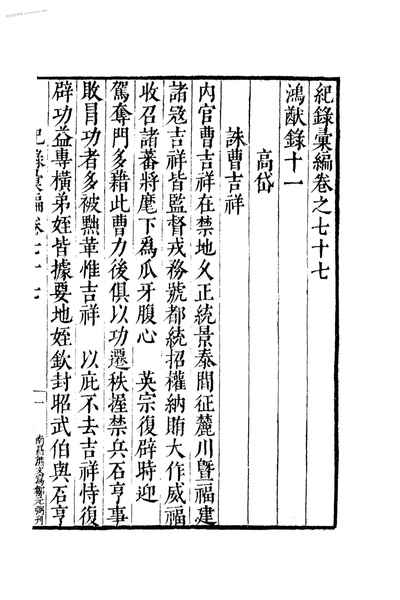 紀錄彙編卷之七十七
鴻猷錄十一
高岱
誅曹吉祥
內官曹吉祥在禁地久正統景泰間征麓川暨福建
諸寇吉祥皆監督戎務號都統招權納賄大作威福
收召諸番將麾下為爪牙腹心 英宗復辟時迎
駕奪門多藉此曹力後俱以功遷秩握禁兵石亨事
敗冐功者多被黜革惟吉祥 以庇不去吉祥恃復
辟功益專橫弟姪皆據要地姪欽封昭武伯與石亨
紀錄彙編卷七十七
一